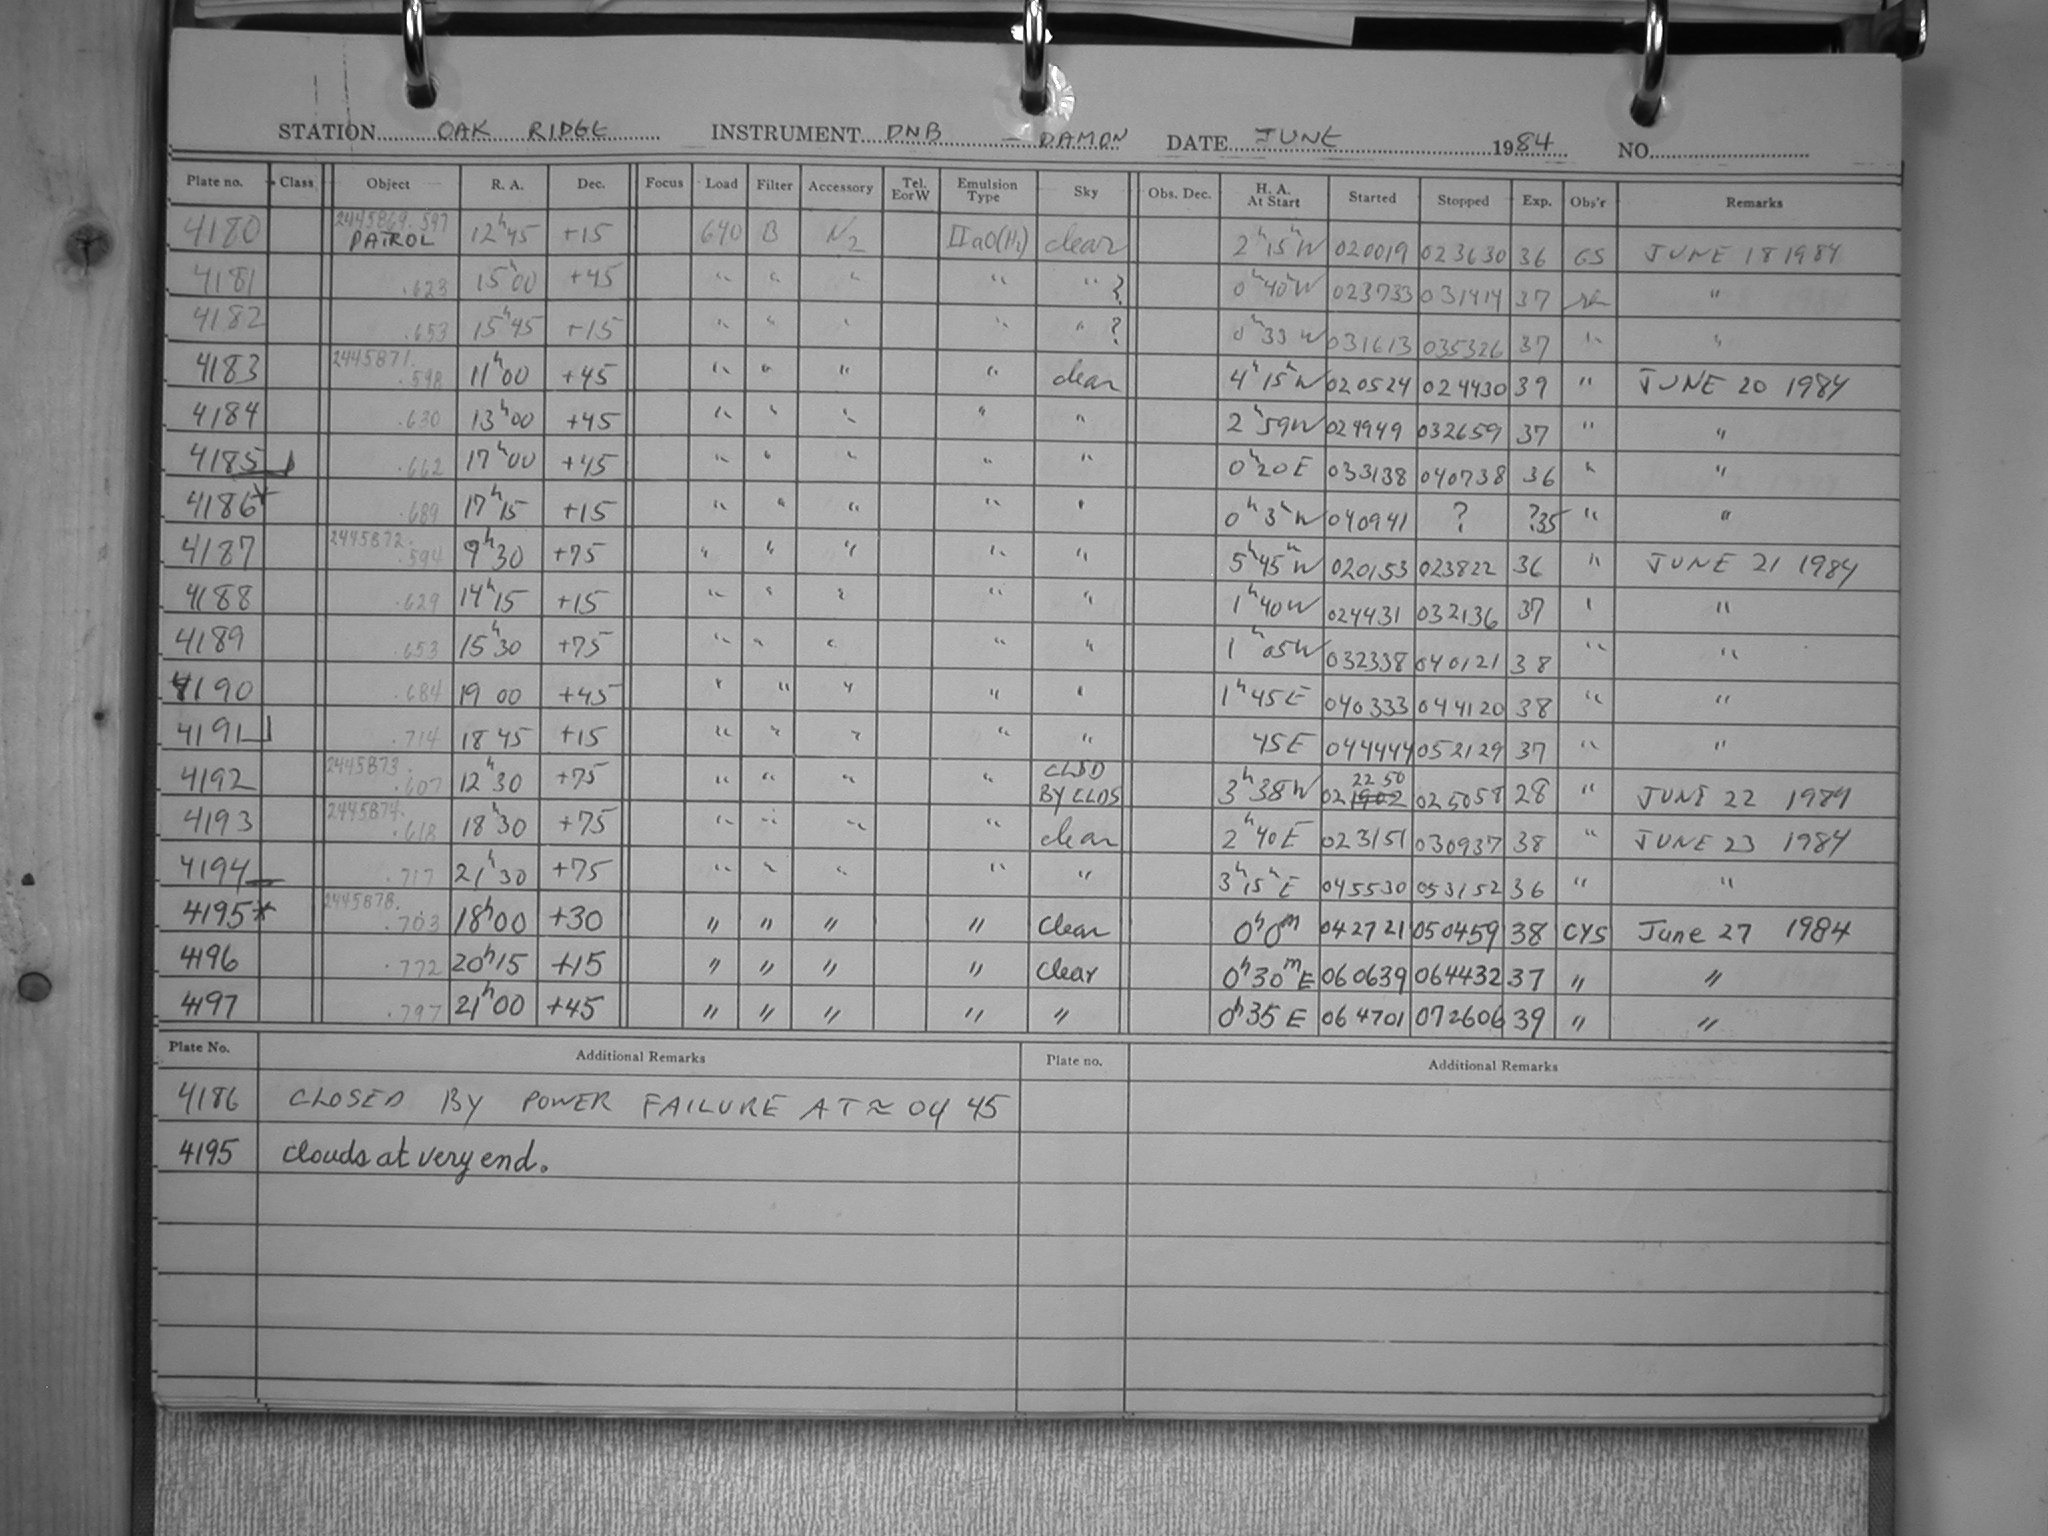 STATION OAK RIDGE INSTRUMENT DNB - DAMON DATE JUNE 1984 NO.
Plate no. Class Object R. A. Dec. Focus Load Filter Accessory Tel. EorW Emulsion Type Sky Obs. Dec. H. A. At Start Started Stopped Exp. Obs'r Remarks
4180 2445869.597 PATROL 12h45 +15 640 B N2 IIaO(H2) clear 2h15mW 020019 023630 36 GS JUNE 18 1984
4181 .623 15h00 +45 " " " " " ? 0h40mW 023733 031414 37 "
4182 .653 15h45 +15 " " " " " ? 0h33W 031613 035326 37 " "
4183 2445871.598 11h00 +45 " " " " clear 4h15mW 020524 024430 39 " JUNE 20 1984
4184 .630 13h00 +45 " " " " " 2h59W 024949 032659 37 " "
4185 .662 17h00 +45 " " " " " 0h20E 033138 040738 36 " "
4186* .689 17h15 +15 " " " " " 0h3mW 040941 ? ?35 " "
4187 2445872.594 9h30 +75 " " " " " 5h45mW 020153 023822 36 " JUNE 21 1984
4188 .629 14h15 +15 " " " " " 1h40W 024431 032136 37 " "
4189 .653 15h30 +75 " " " " " 1h05W 032338 040121 38 " "
4190 .684 19 00 +45 " " " " " 1h45E 040333 044120 38 " "
4191 .714 18 45 +15 " " " " " 45E 044444 052129 37 " "
4192 2445873.607 12h30 +75 " " " " CLSD BY CLDS 3h38W 02 1902 2250 025058 28 " JUNE 22 1984
4193 2445874.618 18h30 +75 " " " " clear 2h40E 023151 030937 38 " JUNE 23 1984
4194 .717 21h30 +75 " " " " " 3h15mE 045530 053152 36 " "
4195* 2445878.703 18h00 +30 " " " " clear 0h0m 042721 050459 38 CYS June 27 1984
4196 .772 20h15 +15 " " " " clear 0h30mE 060639 064432 37 " "
4197 .797 21h00 +45 " " " " " 0h35E 064701 072606 39 " "
Plate No. Additional Remarks Plate no. Additional Remarks
4186 CLOSED BY POWER FAILURE AT ≈ 04 45
4195 clouds at very end.